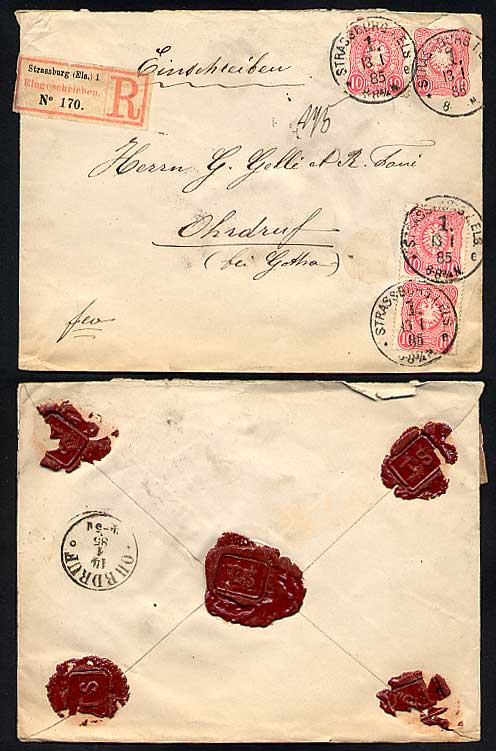 Strassburg (Els.) 1
Eingeschrieben.
No 170.
R
Einschreiben
STRASSBURG I. ELS.
1.
13 1
85
8-9 N.
e
10
10
STRASSBURG I. ELS.
1.
13 1
85
8- N.
Herrn G. Gellé et R.
Ohrdruf
(bei Gotha)
STRASSBURG I. ELS.
1.
13 1
85
8-9 N.
e
10
STRASSBURG I. ELS.
1.
13 1
85
e
10
10
fco
OHRDRUF
14
1
85